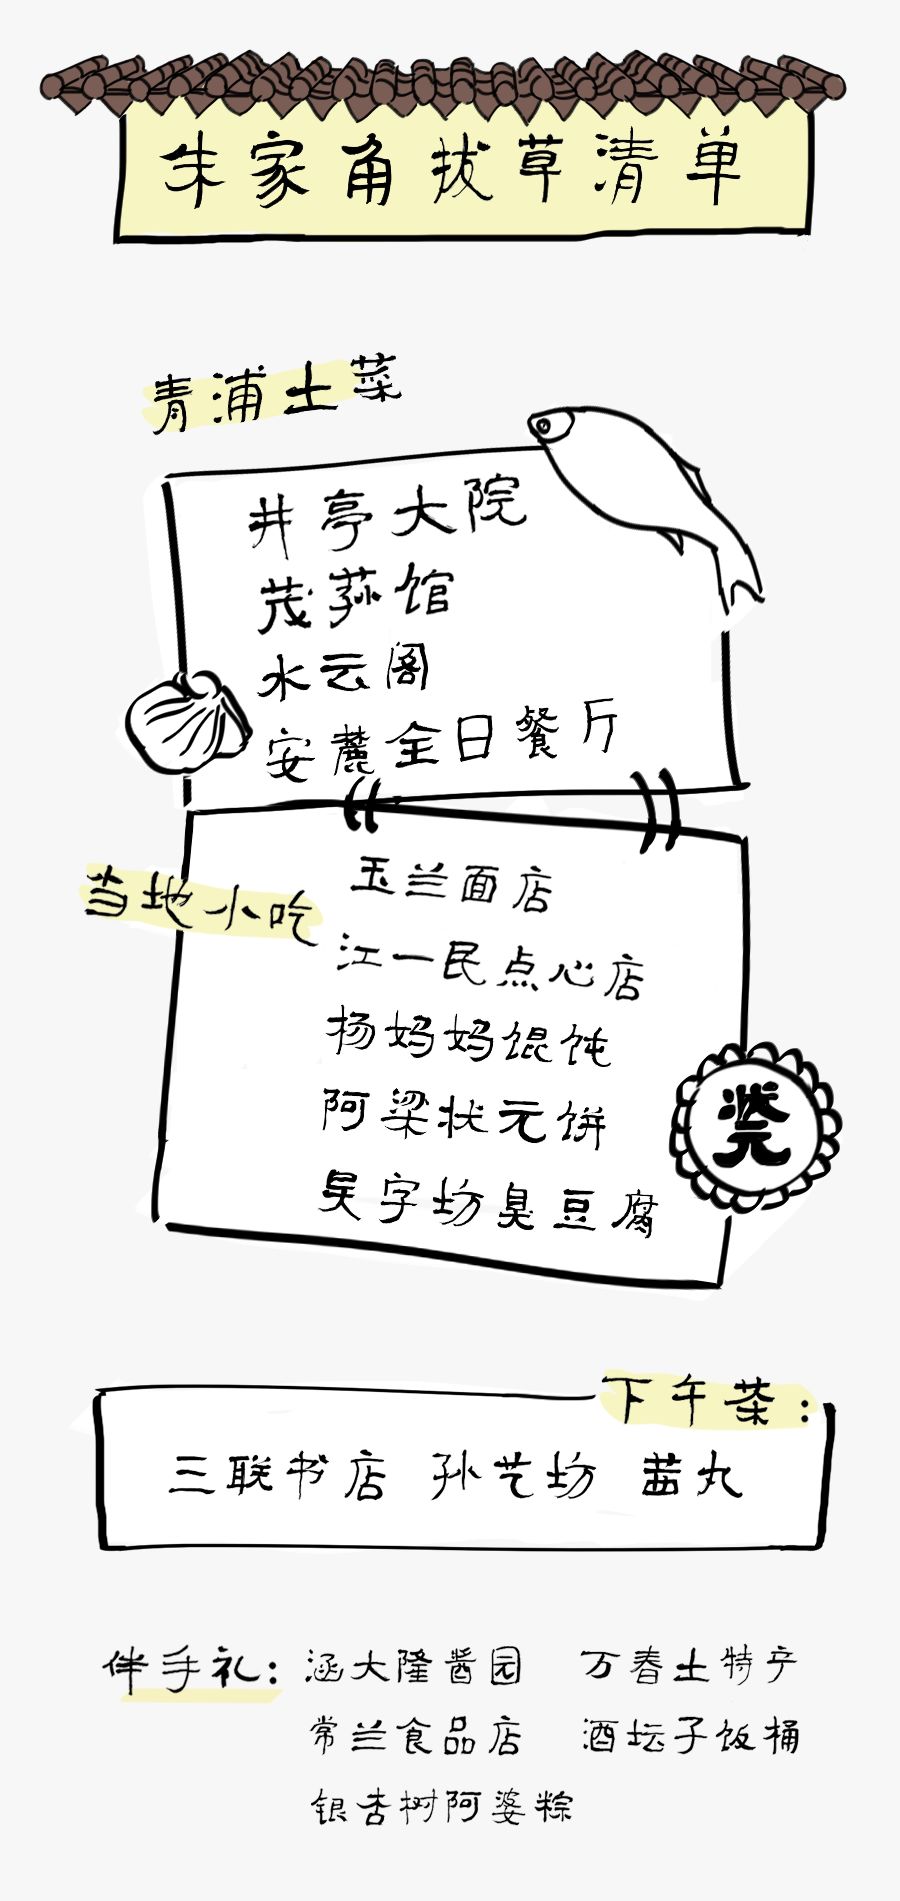 朱家角拔草清单
青浦土菜
井亭大院
茂荪馆
水云阁
安麓全日餐厅
当地小吃
玉兰面店
江一民点心店
杨妈妈馄饨
阿梁状元饼
状元
吴字坊臭豆腐
下午茶：
三联书店 孙艺坊 茜丸
伴手礼：涵大隆酱园 万春土特产
常兰食品店 酒坛子饭桶
银杏树阿婆粽